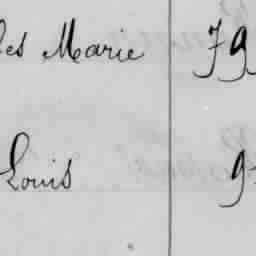 les Marie 79
Louis 9